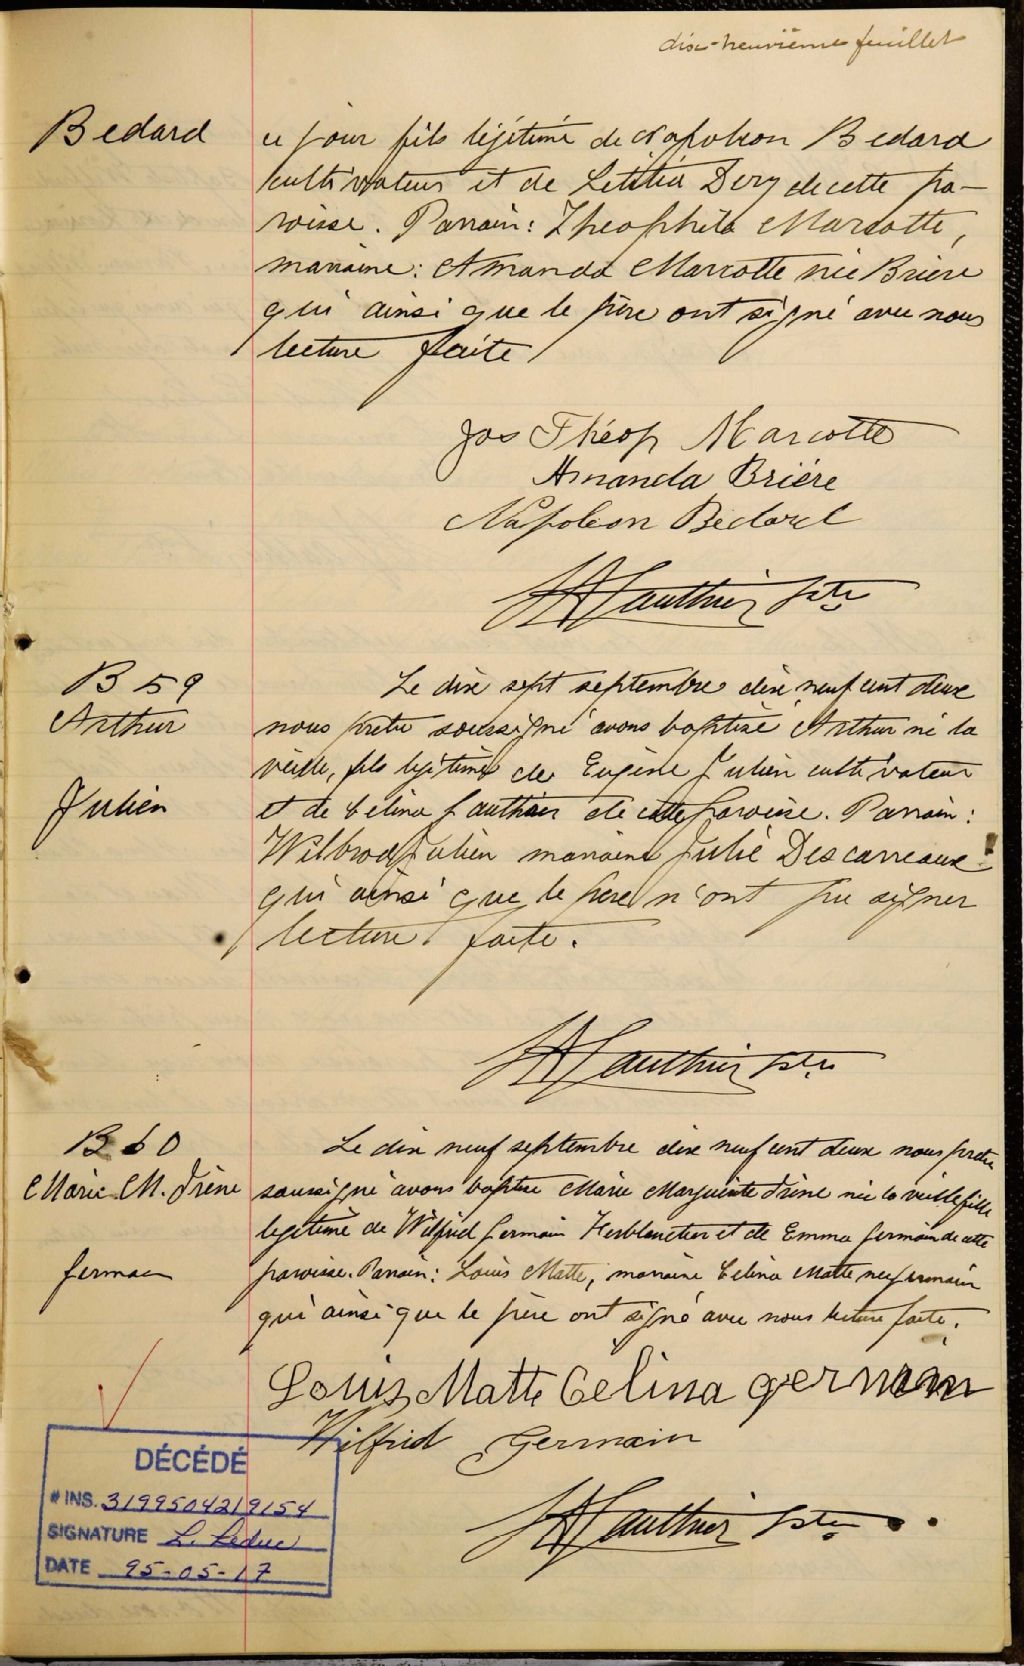 dix-neuvième feuillet
Bedard
ce jour fils légitime de Napoléon Bedard
cultivateur et de Letitia Dery de cette pa-
roisse. Parrain: Theophile Marcotte,
marraine: Amanda Marcotte née Briere
qui ainsi que le père ont signé avec nous
lecture faite
Jos Théop Marcotte
Amanda Brière
Napoléon Bédard
Gauthier Ptre
B 59
Arthur
Julien
Le dix sept septembre dix neuf cent deux
nous pretre soussigné avons baptisé Arthur né la
veille, fils légitime de Eugène Julien cultivateur
et de Celina Gauthier de cette paroisse. Parrain:
Wilbrod Julien marraine Julie Descarreaux
qui ainsi que le père n'ont pu signer
lecture faite.
Gauthier ptre
B 60
Marie M. Irène
Germain
Le dix neuf septembre dix neuf cent deux nous pretre
soussigné avons baptisé Marie Marguerite Irène née la veille fille
legitime de Wilfrid Germain Ferblantier et de Emma Germain de cette
paroisse. Parrain: Louis Matte, marraine Celina Matte nee Germain
qui ainsi que le père ont signé avec nous lecture faite.
Louis Matte Celina germain
Wilfrid Germain
Gauthier Ptre
DÉCÉDÉ
# INS. 3199504219154
SIGNATURE L. Leduc
DATE 95-05-17